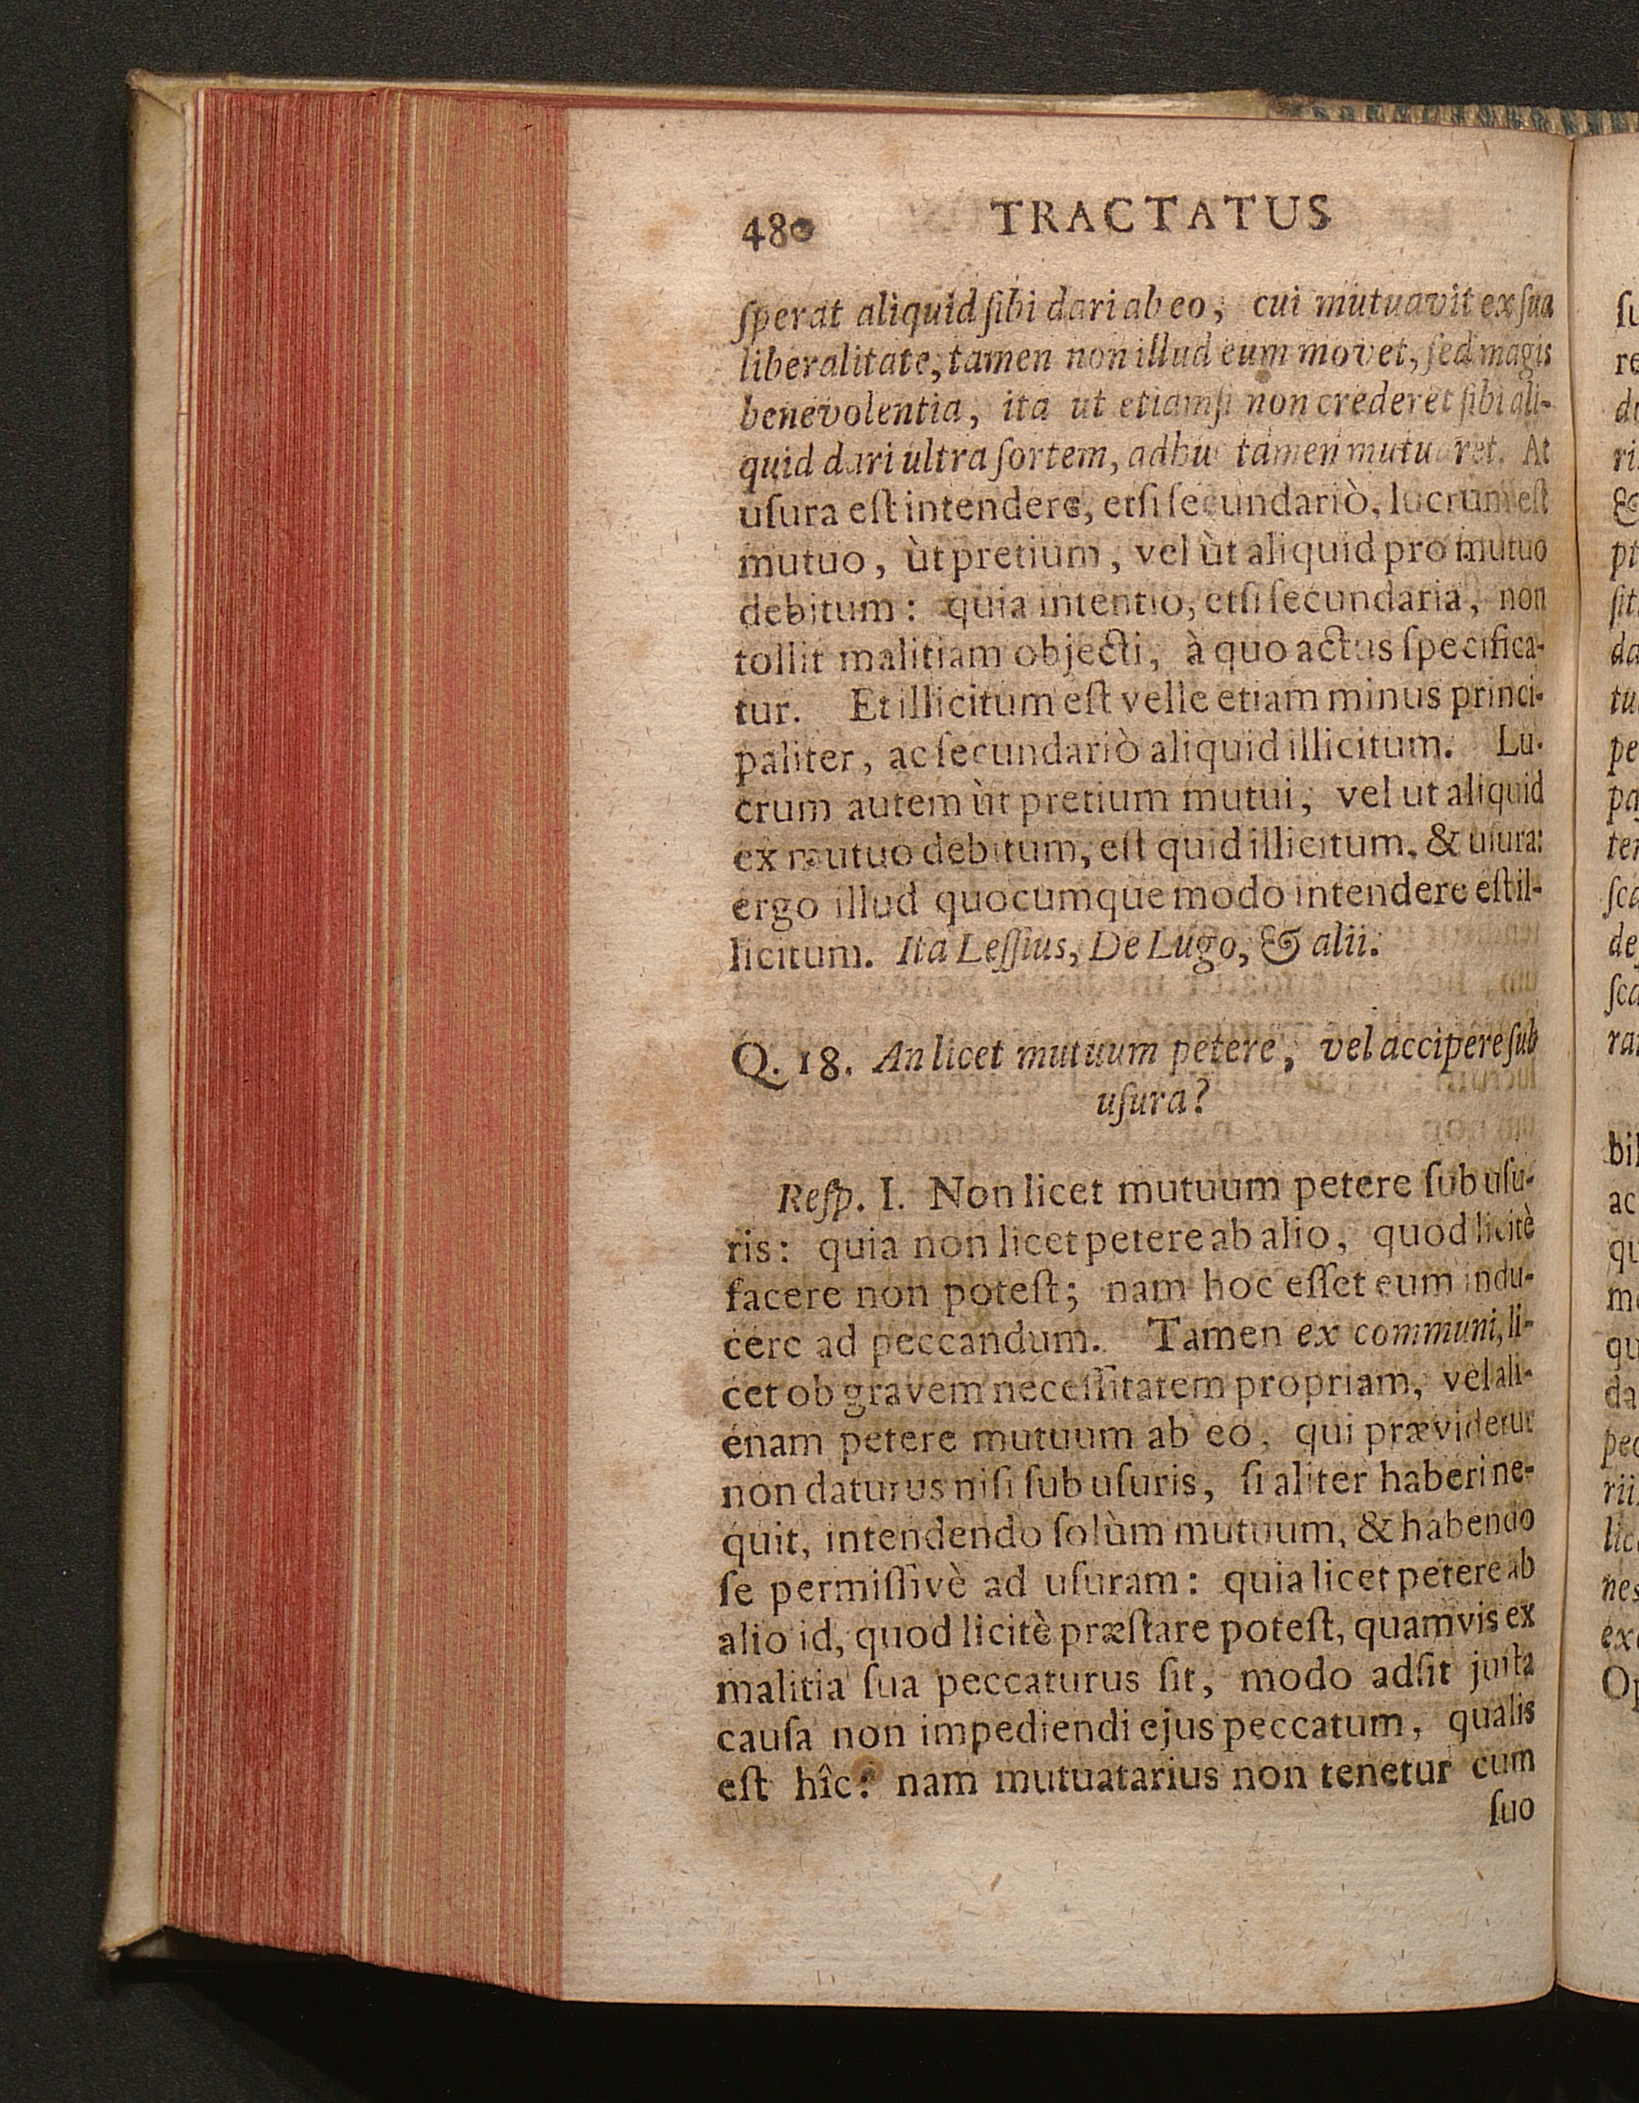 480 TRACTATUS
ſperat aliquid ſibi dari ab eo, cui mutuavit ex ſua
liberalitate, tamen non illud eum movet, ſed magis
benevolentia, ita ut etiamſi non crederet ſibi ali-
quid dari ultra ſortem, adhuc tamen mutuaret. At
uſura eſt intendere, etſi ſecundariò, lucrum eſt
mutuo, ùt pretium, vel ùt aliquid pro mutuo
debitum: quia intentio, etſi ſecundaria, non
tollit malitiam objecti, à quo actus ſpecifica-
tur. Et illicitum eſt velle etiam minus princi-
paliter, ac ſecundariò aliquid illicitum. Lu-
crum autem ùt pretium mutui, vel ut aliquid
ex mutuo debitum, eſt quid illicitum, & uſura:
ergo illud quocumque modo intendere eſt il-
licitum. Ita Leſſius, De Lugo, & alii.
Q. 18. An licet mutuum petere, vel accipere ſub
uſura?
Reſp. I. Non licet mutuum petere ſub uſu-
ris: quia non licet petere ab alio, quod licitè
facere non poteſt; nam hoc eſſet eum indu-
cere ad peccandum. Tamen ex communi, li-
cet ob gravem neceſſitatem propriam, vel ali-
enam petere mutuum ab eo, qui prævidetur
non daturus niſi ſub uſuris, ſi aliter haberi ne-
quit, intendendo ſolùm mutuum, & habendo
ſe permiſſivè ad uſuram: quia licet petere ab
alio id, quod licitè præſtare poteſt, quamvis ex
malitia ſua peccaturus ſit, modo adſit juſta
cauſa non impediendi ejus peccatum, qualis
eſt hîc: nam mutuatarius non tenetur cum
ſuo